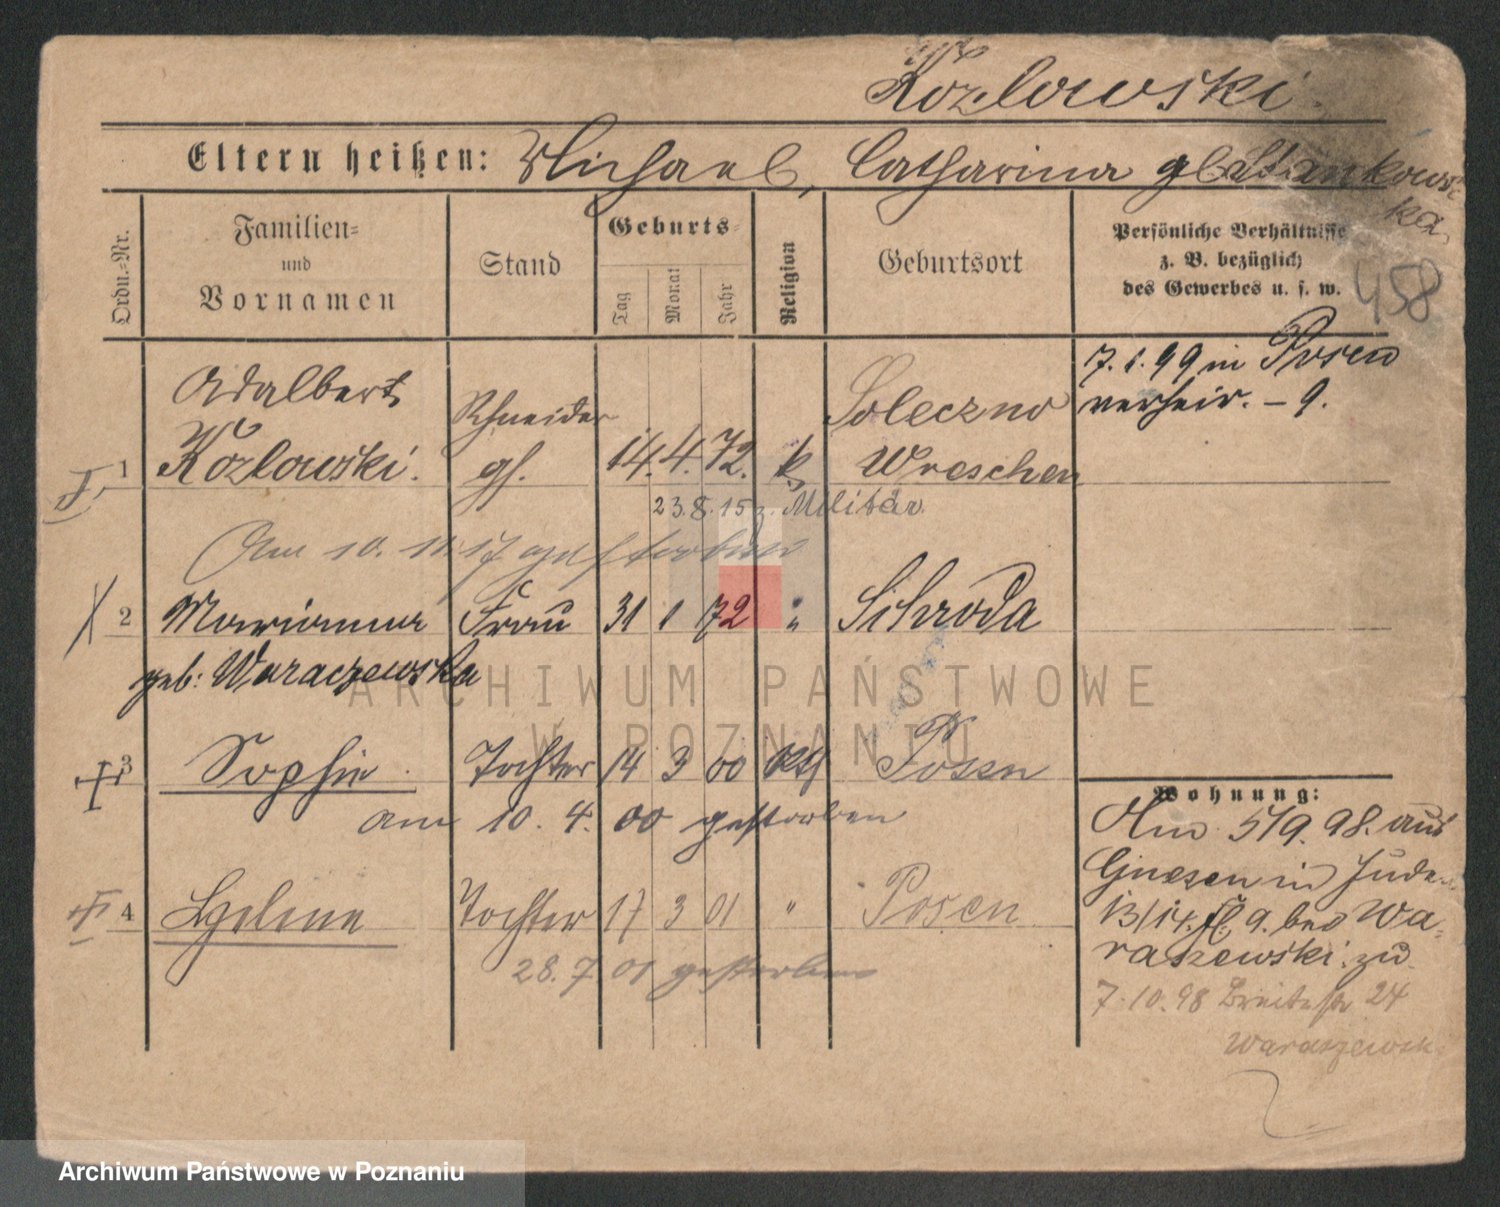 Kozlowski
Eltern heißen: Michael, Catharina gb Stankows-
ka
Ordn.-Nr.
Familien-
und
Vornamen
Stand
Geburts-
Tag
Monat
Jahr
Religion
Geburtsort
Persönliche Verhältnisse
z. B. bezüglich
des Gewerbes u. s. w.
458
7.1.99 in Posen
verheir. – 9.
Adalbert Schneider Soleczno
1 Kozlowski. gs. 14. 4. 72. k Wreschen
23.8.15 z. Militär.
Am 10. 11. 17 gestorben
2 Marianna Frau 31 1 72 " Schroda
geb: Waraczewska
3 Sophie Tochter 14 3 00 kth Posen
am 10. 4. 00 gestorben
4 Helene Tochter 17 3 01 " Posen
28. 7 01 gestorben
Wohnung:
Am 5/9. 98. aus
Gnesen in Jude-
13/14. 9. bei Wa-
raszewski. zu
7.10.98 Breitestr 24
Waraszewsk
ARCHIWUM PAŃSTWOWE
W POZNANIU
Archiwum Państwowe w Poznaniu